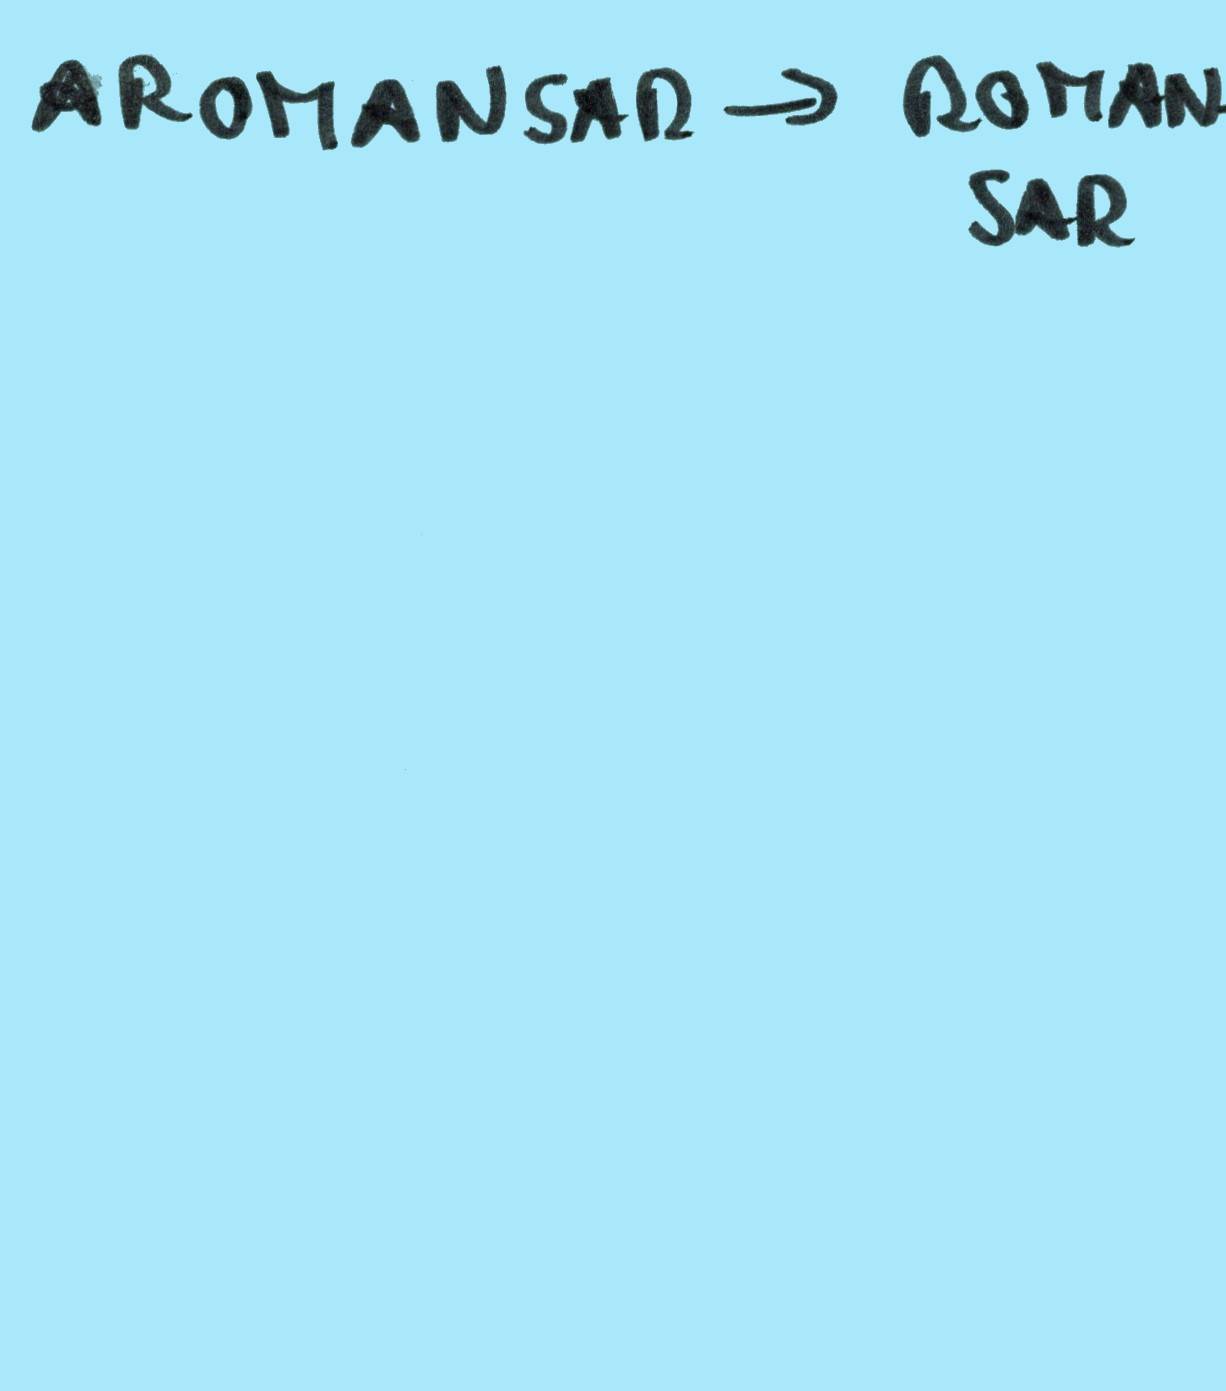 AROMANSAR → ROMAN-
SAR